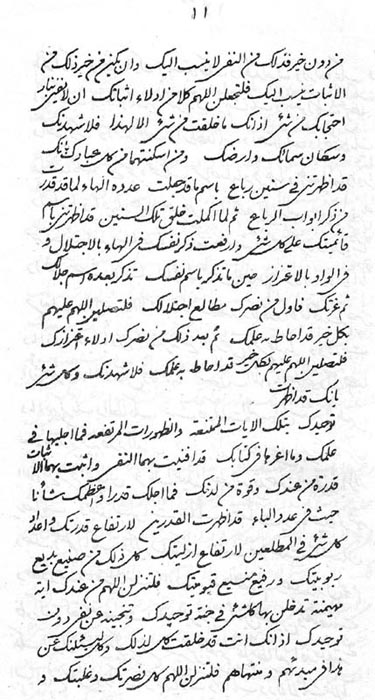 ١١
من دون خير فذلك من النفي لا ينسب اليك وان يكن من خير ذلك من
الاثبات ينسب اليك فلتجعلن اللهم كلا من ادلاء اثباتك ان لا
احتجابك من شئ اذ انك ما خلقت من شئ الا لهذا فلاشهدنك
وسكان سمائك وارضك ومن اسكنتهما من كل عبادك بانك
قد اظهرتني في سنين رباع باسم ما قد جعلت عدده الهاء لما قد قدرت
من ذكر ابواب الرباع ثم لما اكملت خلق تلك السنين قد اظهرتني باسم
قائميتك على كل شئ وارفعت ذكر نفسك في الهاء بالاجتلال و
في الواو بالاعتزاز حين ما تذكر باسم نفسك تذكر بعده اسم جلالك
ثم عزتك فاول من نصرك مطالع اجتلالك فلتصلين اللهم عليهم
بكل خير قد احاط به علمك ثم بعد ذلك من نصرك ادلاء اعتزازك
فلتصلين اللهم عليهم بكل خير قد احاط به علمك فلاشهدنك وكل شئ
بانك قد اظهرت
توحيدك بتلك الايات الممتنعه والظهورات المرتفعه فما اجلها في
علمك وما اعزها في كتابك قد افنيت بهما النفي واثبت بهما الاثبات
قدرة من عندك وقوة من لدنك فما اجلك قدرا واعظمك شأنا
حيث في عدد الباء قد اظهرت القدرين لارتفاع قدرتك واعداد
كل شئ في المطلعين لارتفاع ازليتك كل ذلك من صنيع بديع
ربوبيتك ورفيع منيع قيوميتك فلتنزلن اللهم من عندك اية
مهيمنة تدخلن بها كل شئ في جنة توحيدك وتنجينه عن نفي دون
توحيدك اذ انك انت قد خلقت كل لذلك وكل ليسئلنك عن
هذا في مبدئهم ومنتهاهم فلتنزلن اللهم كل نصرتك وغلبتك و